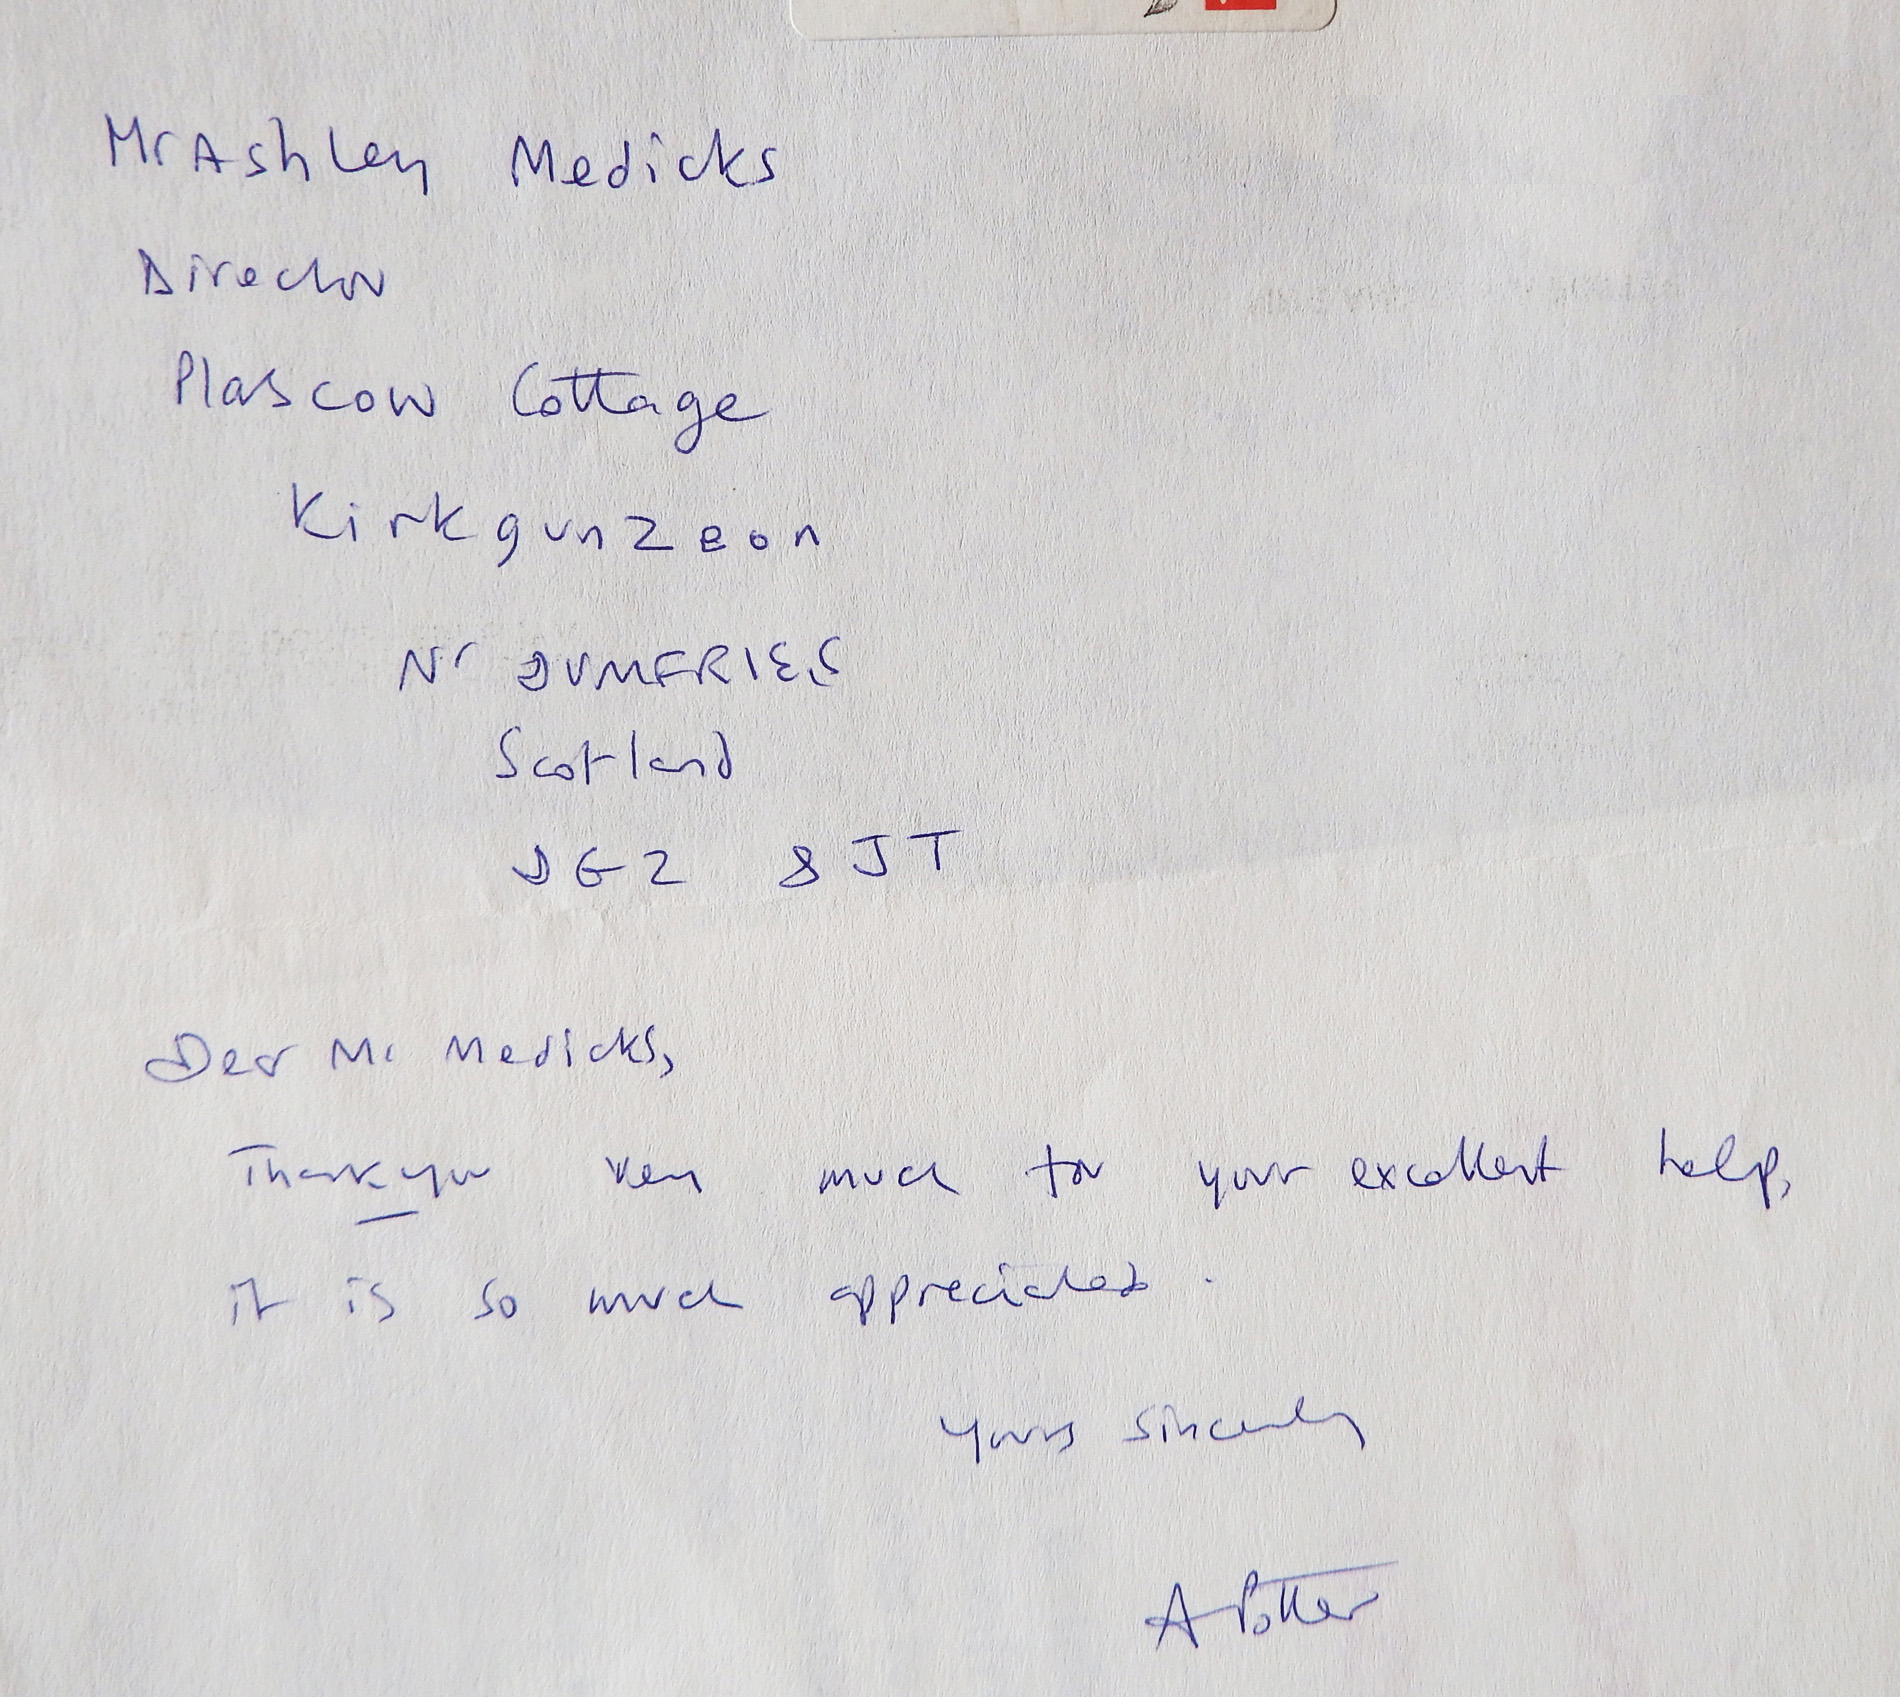 Mr Ashley Medicks
Director
Plascow Cottage
Kirkgunzeon
Nr DUMFRIES
Scotland
DG2 8JT
Dear Mr Medicks,
Thankyou very much for your excellent help,
it is so much appreciated.
Yours sincerely
A Potter